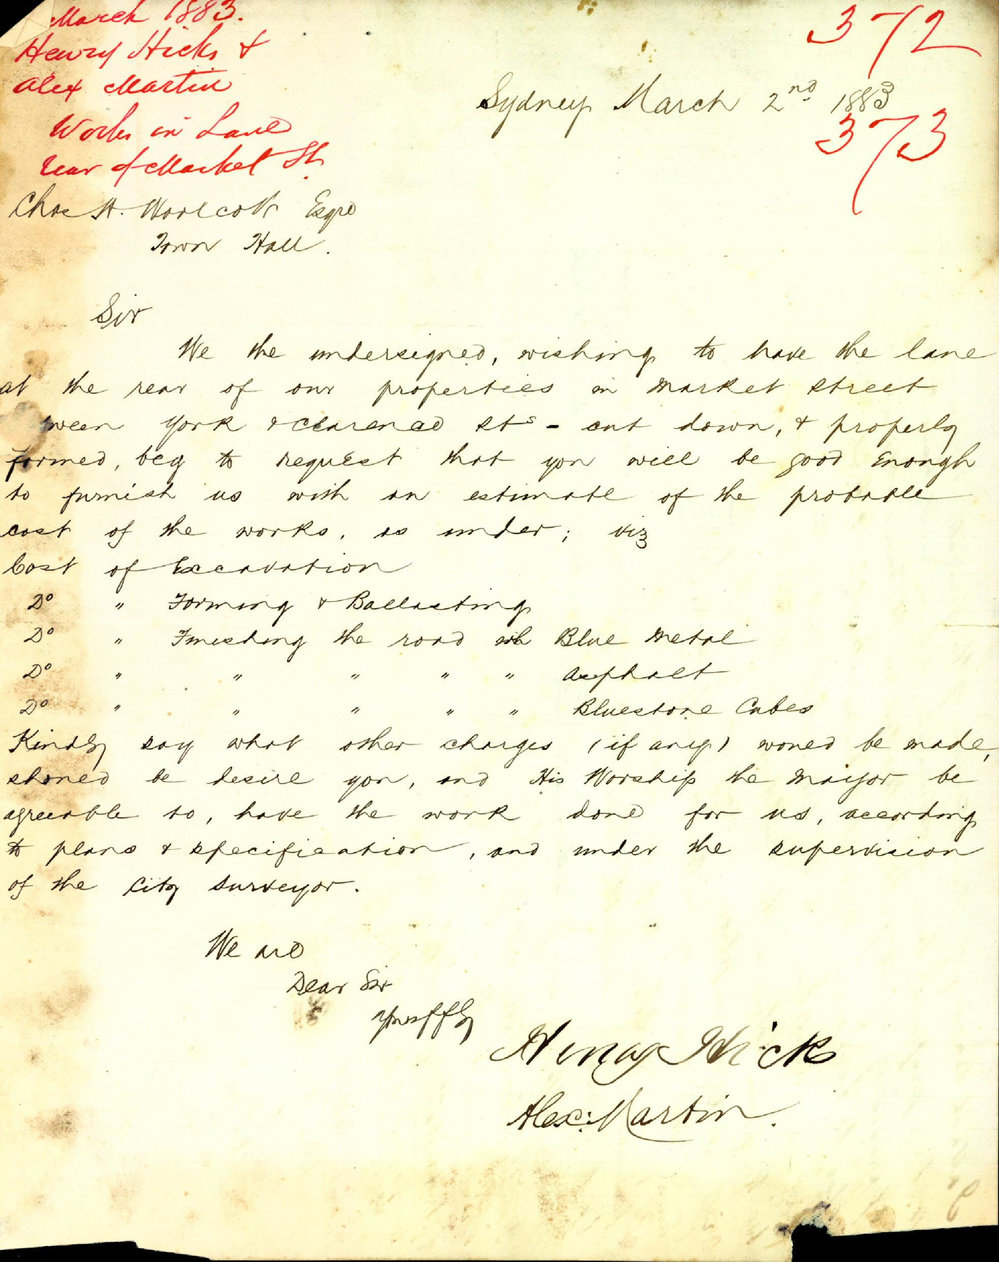 March 1883.
Henry Hicks &
Alex Martin
Works in Lane
rear of Market St.
372
373
Sydney March 2nd 1883
Chas H. Woolcott Esqre
Town Hall.
Sir
We the undersigned, wishing to have the lane
at the rear of our properties in Market Street
ween York & Clarence Sts - cut down, & properly
formed, beg to request that you will be good enough
to furnish us with an estimate of the probable
cost of the works, as under; viz
Cost of Excavation
Do " Forming & Ballasting
Do " Finishing the road with Blue Metal
Do " " " " " Asphalt
Do " " " " " Bluestone Cubes
Kindly say what other charges (if any) would be made,
should we desire you, and His Worship the Mayor be
agreeable to, have the work done for us, according
to plans & specification, and under the supervision
of the City Surveyor.
We are
Dear Sir
Yours ffly
Henry Hicks
Alex: Martin.